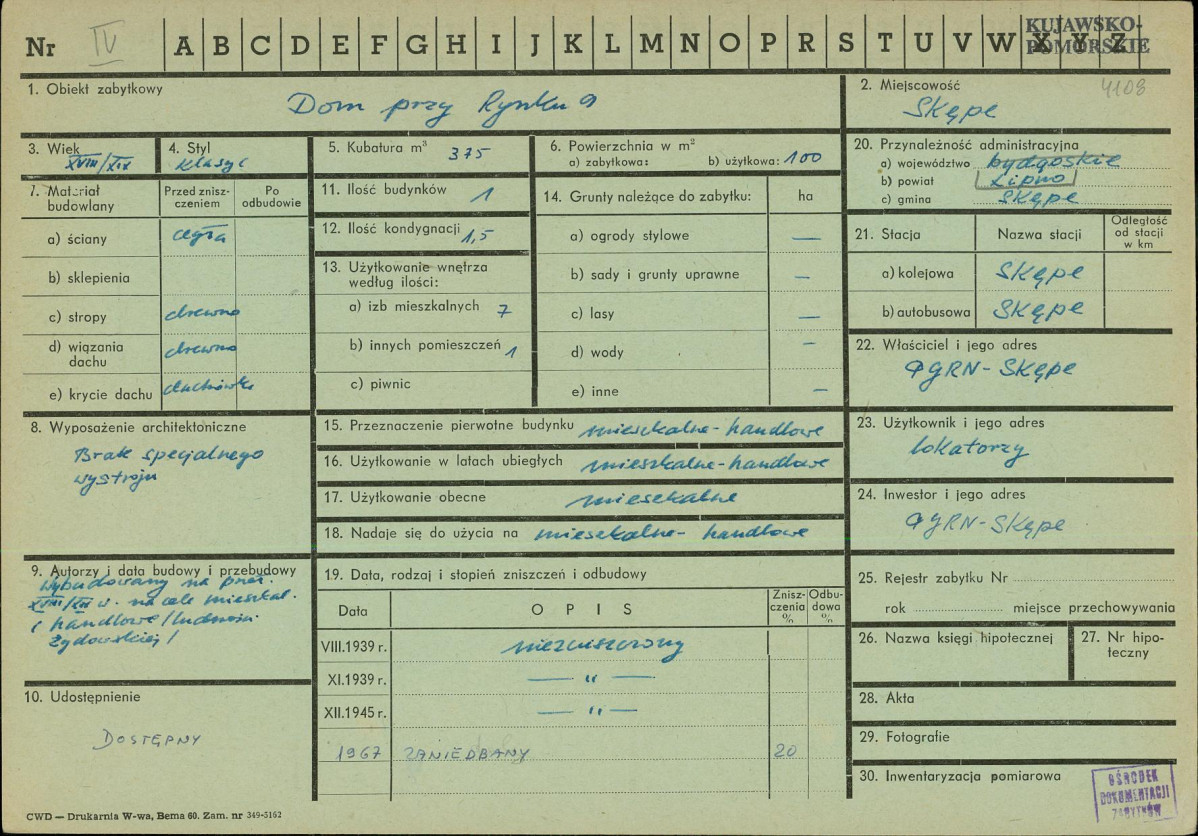 Nr IV A B C D E F G H I J K L M N O P R S T U V W X Y Z
KUJAWSKO-
POMORSKIE
1. Obiekt zabytkowy
Dom przy Rynku 9
2. Miejscowość
4108
Skępe
3. Wiek
XVIII/XIX
4. Styl
klasyc
5. Kubatura m³ 375
6. Powierzchnia w m²
a) zabytkowa: b) użytkowa: 100
20. Przynależność administracyjna
a) województwo bydgoskie
b) powiat Lipno
c) gmina Skępe
7. Materiał budowlany
Przed zniszczeniem
Po odbudowie
a) ściany cegła
b) sklepienia
c) stropy drewno
d) wiązania dachu drewno
e) krycie dachu dachówka
11. Ilość budynków 1
12. Ilość kondygnacji 1,5
13. Użytkowanie wnętrza
według ilości:
a) izb mieszkalnych 7
b) innych pomieszczeń 1
c) piwnic
14. Grunty należące do zabytku: ha
a) ogrody stylowe —
b) sady i grunty uprawne —
c) lasy —
d) wody —
e) inne —
21. Stacja Nazwa stacji
Odległość
od stacji
w km
a) kolejowa Skępe
b) autobusowa Skępe
22. Właściciel i jego adres
PGRN - Skępe
8. Wyposażenie architektoniczne
Brak specjalnego
wystroju
15. Przeznaczenie pierwotne budynku mieszkalne - handlowe
16. Użytkowanie w latach ubiegłych mieszkalne - handlowe
17. Użytkowanie obecne mieszkalne
18. Nadaje się do użycia na mieszkalne - handlowe
23. Użytkownik i jego adres
lokatorzy
24. Inwestor i jego adres
PGRN - Skępe
9. Autorzy i data budowy i przebudowy
wybudowany na przeł.
XVIII/XIX w. na cele mieszkal.
i handlowe /ludności
żydowskiej/
19. Data, rodzaj i stopień zniszczeń i odbudowy
Data
OPIS
Zniszczenia %
Odbudowa %
VIII.1939 r. niezniszczony
XI.1939 r. — " —
XII.1945 r. — " —
1967 ZANIEDBANY 20
25. Rejestr zabytku Nr
rok miejsce przechowywania
26. Nazwa księgi hipotecznej
27. Nr hipoteczny
10. Udostępnienie
DOSTĘPNY
28. Akta
29. Fotografie
30. Inwentaryzacja pomiarowa
OŚRODEK
DOKUMENTACJI
ZABYTKÓW
CWD — Drukarnia W-wa, Bema 60. Zam. nr 349-5162